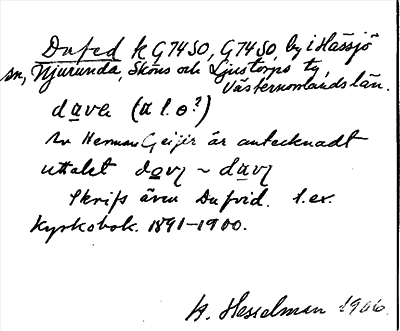 Dufed k G7450, G7450, by i Hässjö
sn, Njurunda, Sköns och Ljustorps tg,
Västernorrlands län.
dave (a l. o?)
Av Herman Geijer är antecknadt
uttalet
Skrifs även Dufvid. t. ex.
Kyrkobok. 1891-1900.
B. Hesselman 1906.